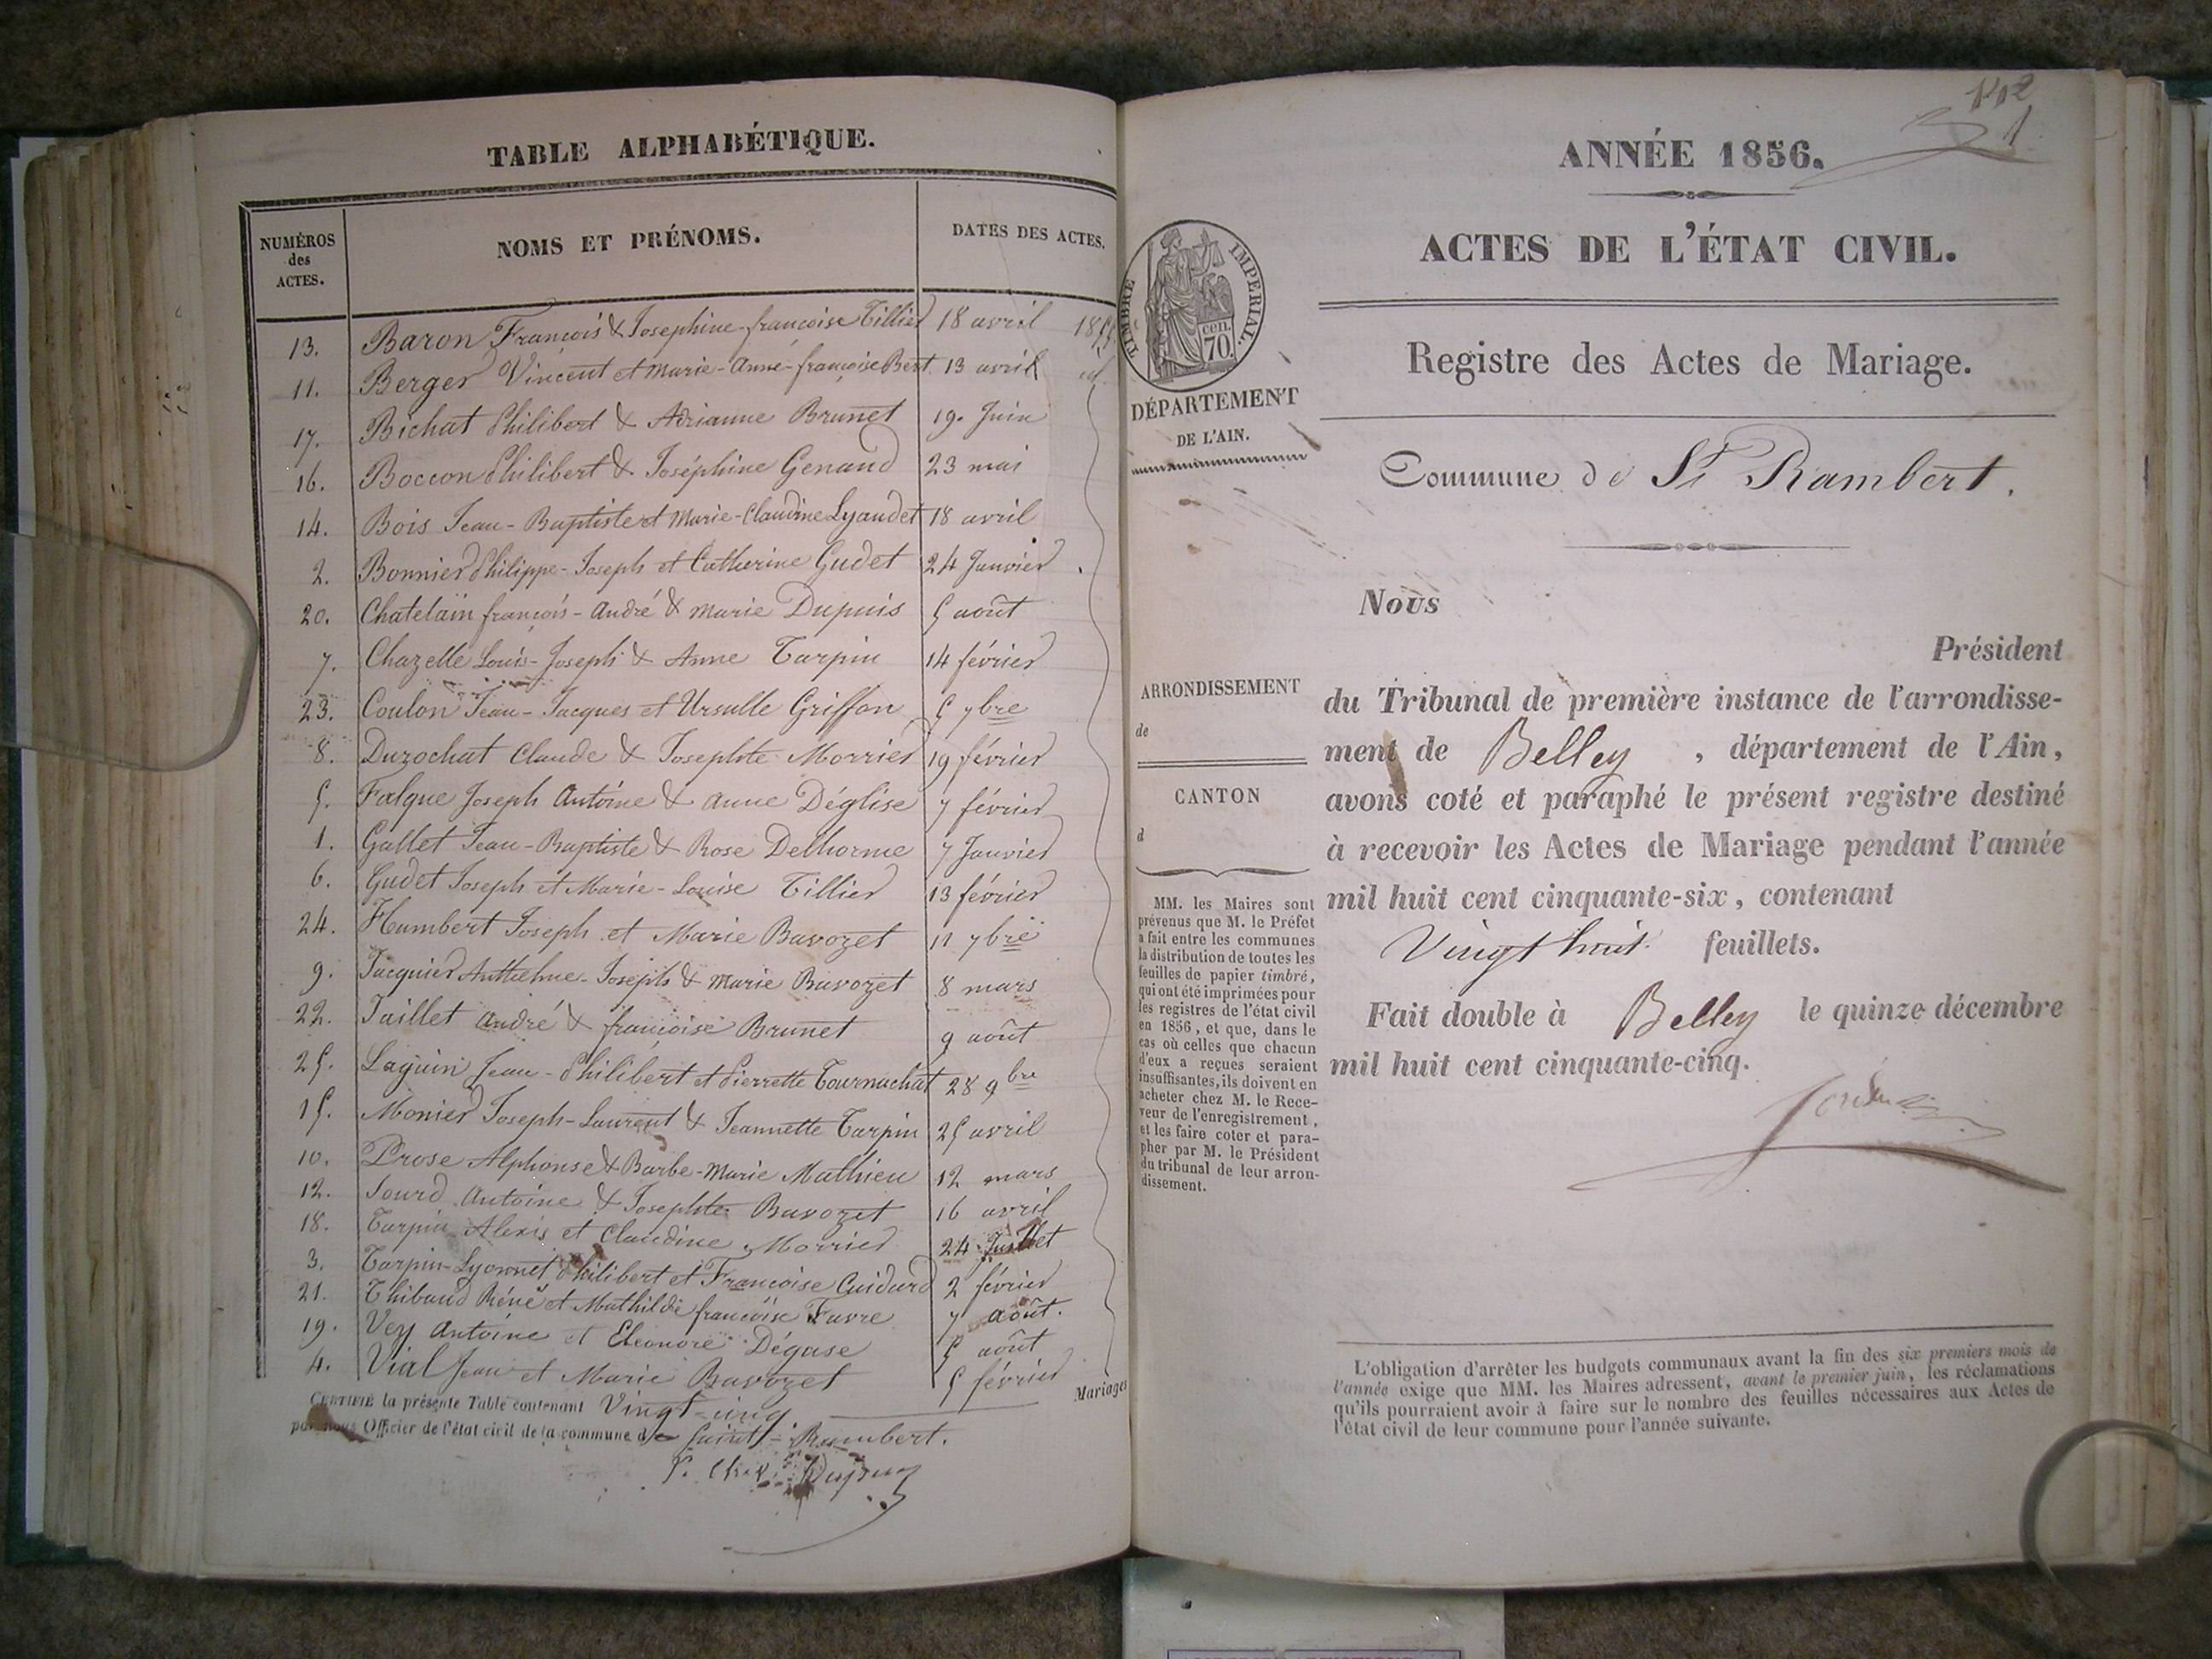 TABLE ALPHABÉTIQUE.
NUMÉROS des ACTES.
NOMS ET PRÉNOMS.
DATES DES ACTES.
13. Baron François & Josephine-françoise Tillier 18 avril 1855
11. Berger Vincent et Marie-Anne-françoise Bert 13 avril id.
17. Bichat Philibert & Adrianne Brunet 19. Juin
16. Boccon Philibert & Joséphine Genaud 23 mai
14. Bois Jean-Baptiste et Marie-Claudine Lyaudet 18 avril
2. Bonnier Philippe-Joseph et Catherine Gudet 24 Janvier
20. Chatelain françois-André & Marie Dupuis 5 août
7. Chazelle Louis-Joseph & Anne Tarpin 14 février
23. Coulon Jean-Jacques et Ursulle Griffon 5 7bre
8. Durochat Claude & Josephte Morrier 19 février
5. Falque Joseph Antoine & Anne Déglise 7 février
1. Gallet Jean-Baptiste & Rose Delhorme 7 Janvier
6. Gudet Joseph et Marie-Louise Tillier 13 février
24. Humbert Joseph et Marie Bavozet 11 7bre
9. Jacquier Anthelme-Joseph & Marie Bavozet 8 mars
22. Juillet André & françoise Brunet 9 août
25. Laguin Jean-Philibert et Pierrette Tournachat 28 9bre
15. Monier Joseph-Laurent & Jeannette Tarpin 25 avril
10. Prose Alphonse & Barbe-Marie Mathieu 12 mars
12. Sourd Antoine & Josephte Bavozet 16 avril
18. Tarpin Alexis et Claudine Morrier 24 Juillet
3. Tarpin-Lyonnet Philibert et Françoise Guidard 2 février
21. Thibaud Réné et Mathilde françoise Favre 7 août.
19. Vey Antoine et Eléonore Dégase 5 août
4. Vial Jean et Marie Bavozet 5 février
Mariages
CERTIFIÉ la présente Table contenant Vingt-cinq
par nous Officier de l'état civil de la commune de Saint-Rambert.
Dupuy
142
1
ANNÉE 1856.
ACTES DE L'ÉTAT CIVIL.
Registre des Actes de Mariage.
TIMBRE IMPÉRIAL.
70 cen.
DÉPARTEMENT
DE L'AIN.
Commune de St Rambert.
Nous
Président
du Tribunal de première instance de l'arrondisse-
ment de Belley, département de l'Ain,
avons coté et paraphé le présent registre destiné
à recevoir les Actes de Mariage pendant l'année
mil huit cent cinquante-six, contenant
Vingt huit feuillets.
Fait double à Belley le quinze décembre
mil huit cent cinquante-cinq.
ARRONDISSEMENT
de
CANTON
d
MM. les Maires sont
prévenus que M. le Préfet
a fait entre les communes
la distribution de toutes les
feuilles de papier timbré,
qui ont été imprimées pour
les registres de l'état civil
en 1856, et que, dans le
cas où celles que chacun
d'eux a reçues seraient
insuffisantes, ils doivent en
acheter chez M. le Rece-
veur de l'enregistrement,
et les faire coter et para-
pher par M. le Président
du tribunal de leur arron-
dissement.
L'obligation d'arrêter les budgets communaux avant la fin des six premiers mois de
l'année exige que MM. les Maires adressent, avant le premier juin, les réclamations
qu'ils pourraient avoir à faire sur le nombre des feuilles nécessaires aux Actes de
l'état civil de leur commune pour l'année suivante.